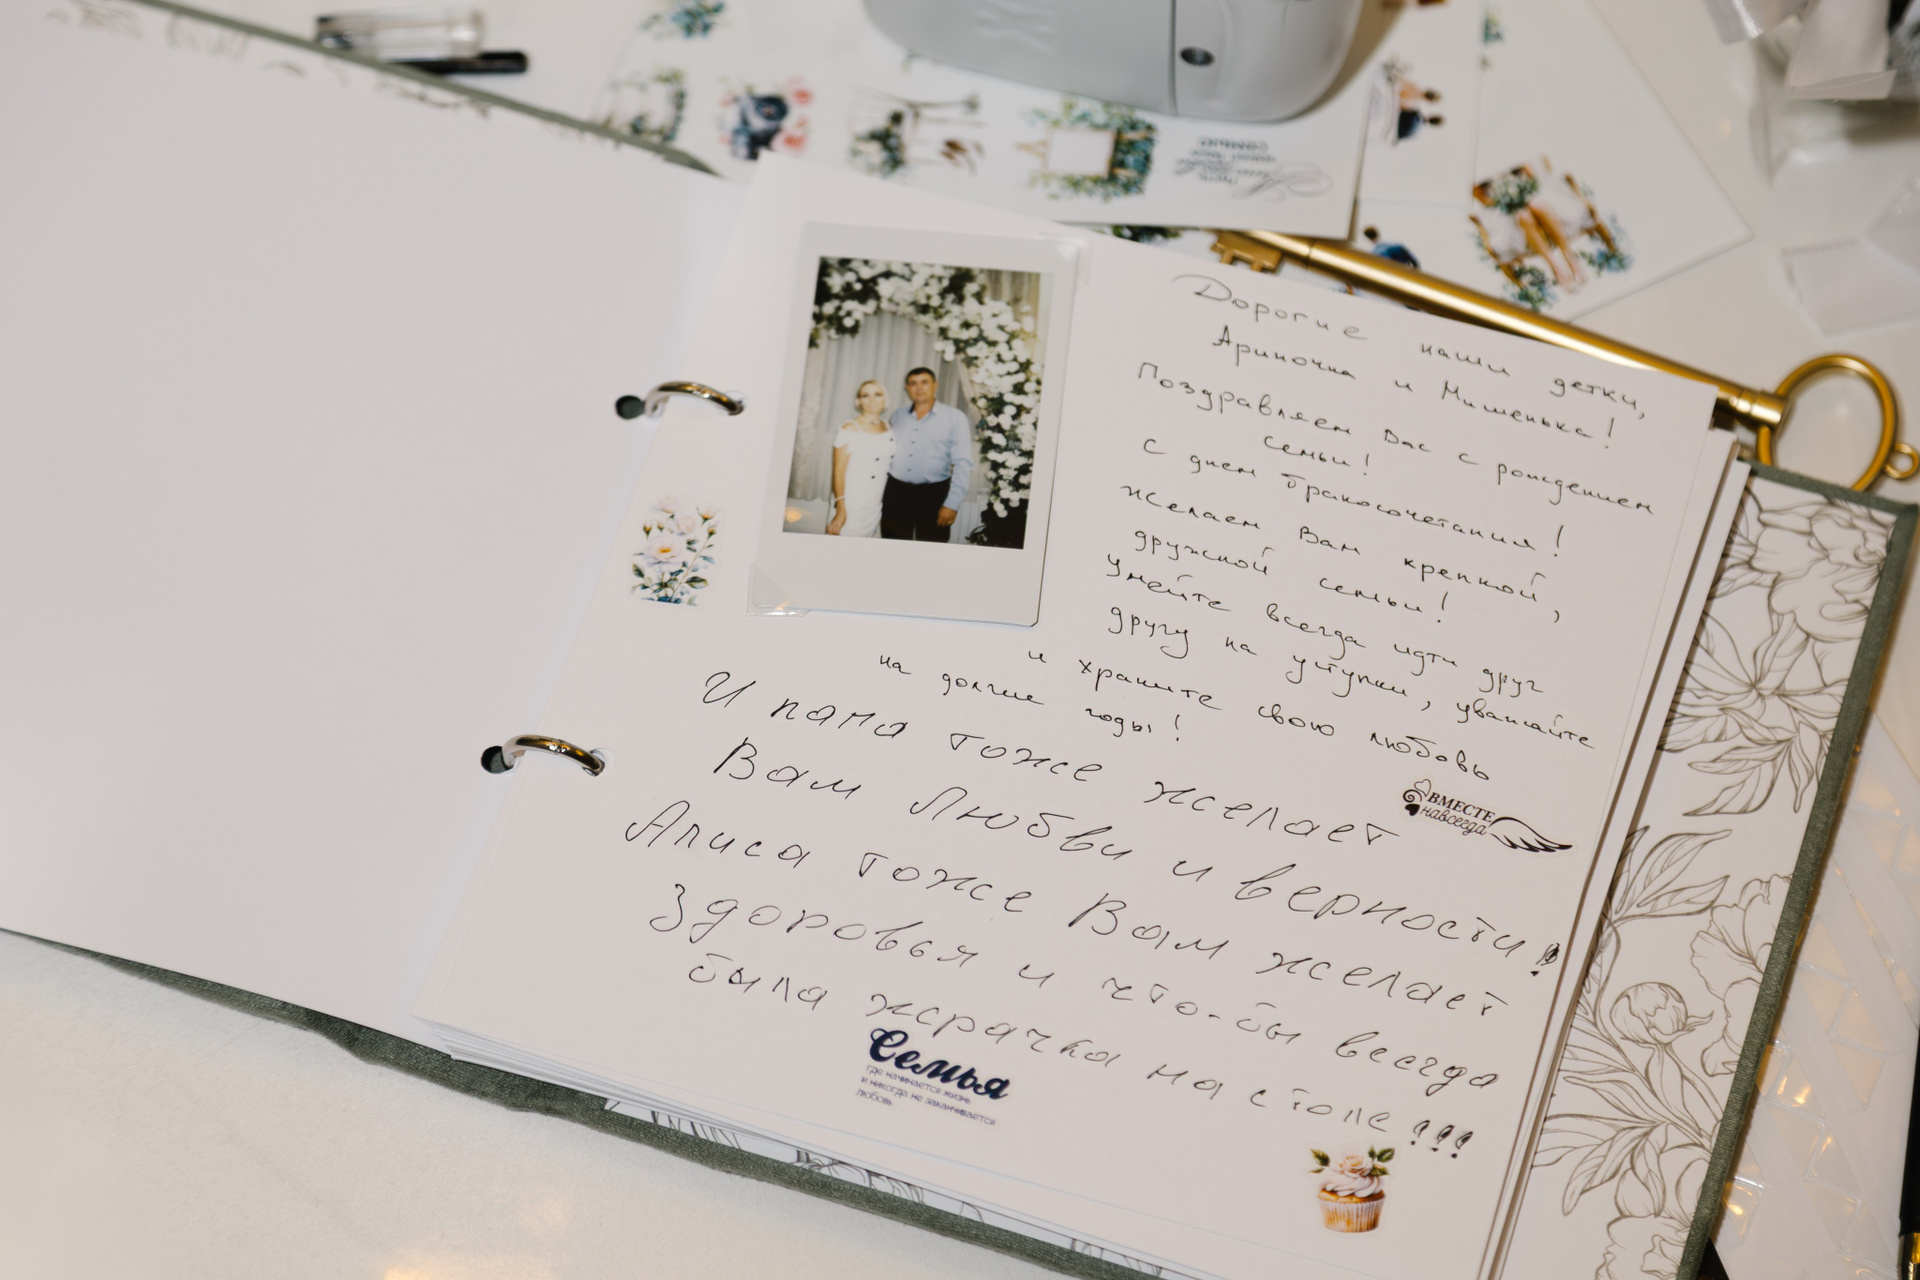 Дорогие наши детки,
Ариночка и Мишенька!
Поздравляем Вас с рождением
семьи!
С днем бракосочетания!
Желаем Вам крепкой,
дружной семьи!
Умейте всегда идти друг
другу на уступки, уважайте
и храните свою любовь
на долгие годы!
И папа тоже желает
Вам Любви и верности!
Алиса тоже Вам желает
Здоровья и что-бы всегда
была жрачка на столе!!!
ВМЕСТЕ
навсегда
Семья
где начинается жизнь
и никогда не заканчивается
любовь